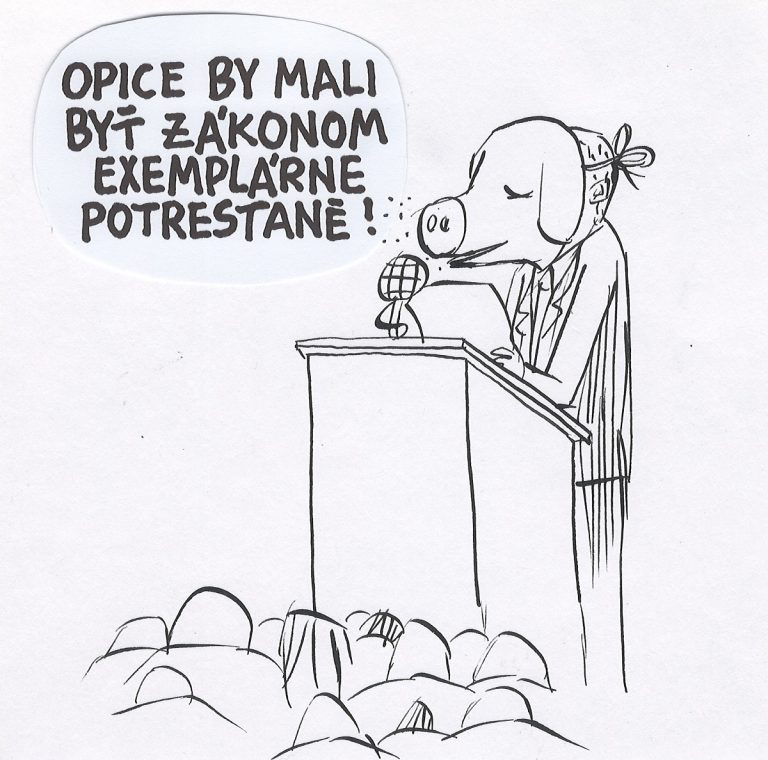 OPICE BY MALI
BYŤ ZÁKONOM
EXEMPLÁRNE
POTRESTANÉ!